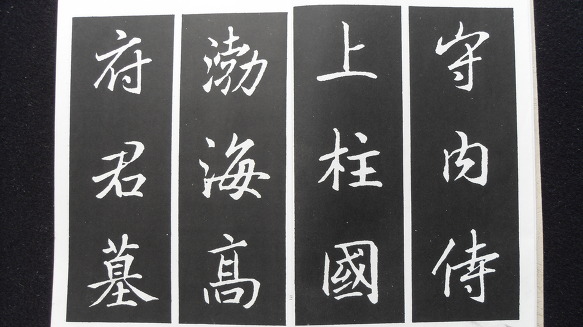 守内侍
上柱國
渤海高
府君墓